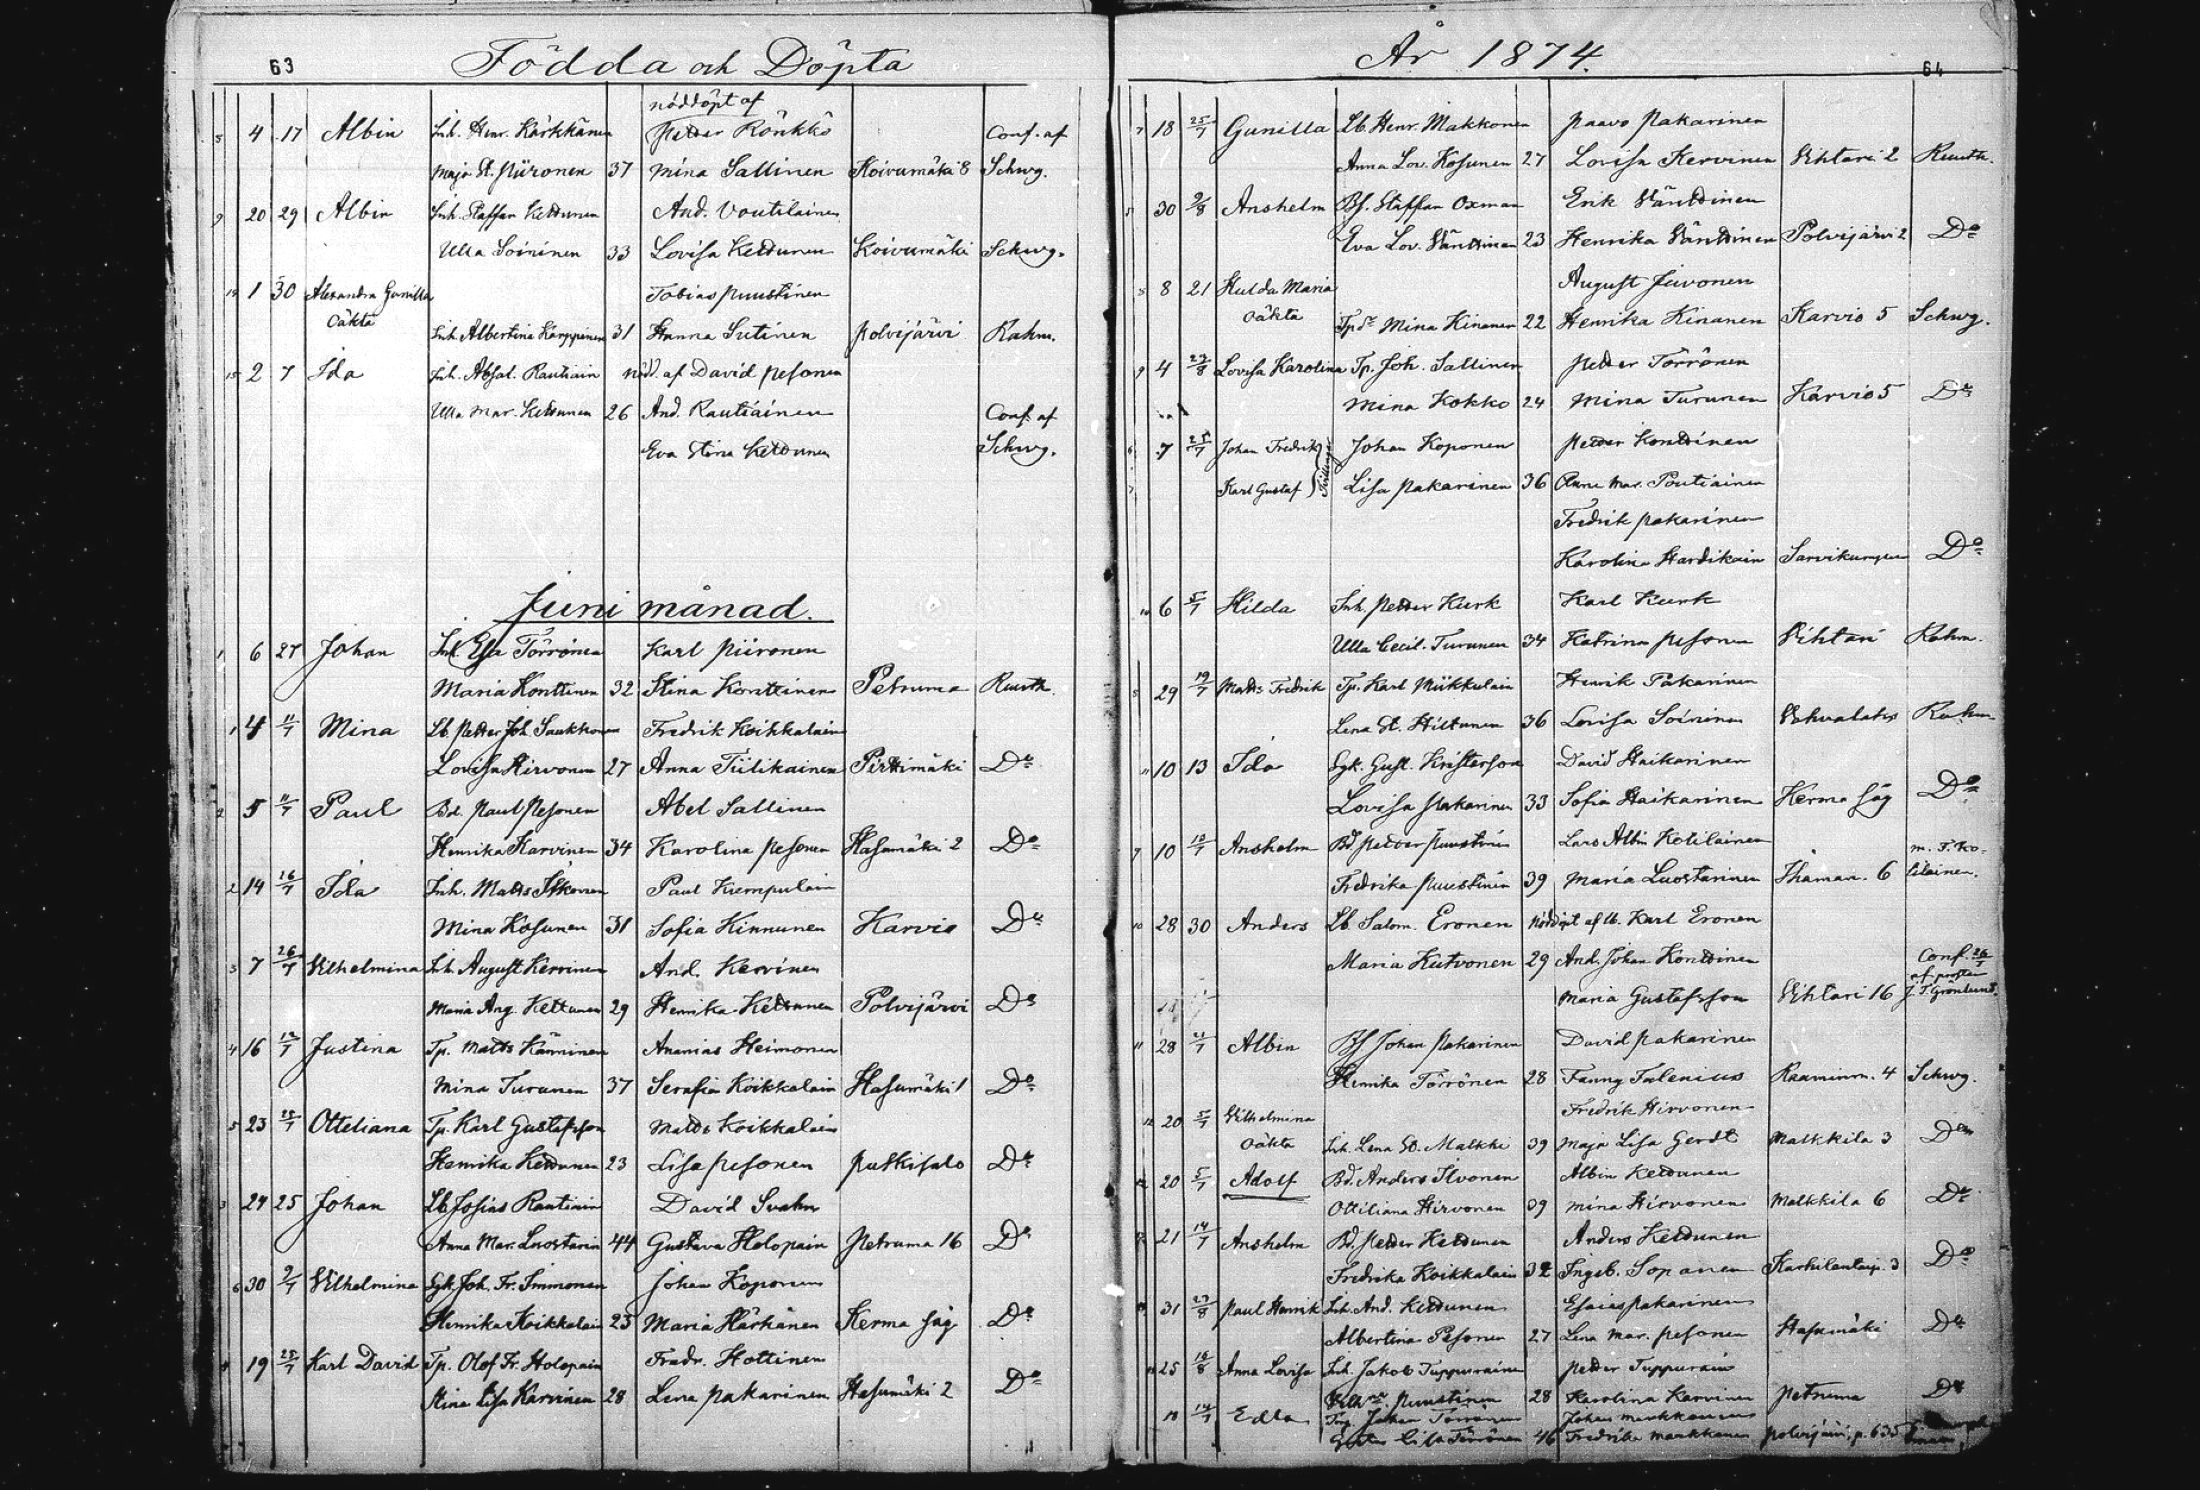 63
Födda och Döpta
nöddöpt af
4 17 Albin Inh. Henr. Kärkkänen Petter Rönkkö Conf. af
Maja St. Piironen 37 Mina Sallinen Koivumäki 8 Schwg.
20 29 Albin Inh. Staffan Kettunen And. Voutilainen
Ulla Soininen 33 Lovisa Kettunen Koivumäki Schwg.
1 30 Alexandra Gunilla Tobias Puustinen
oäkta
Inh. Albertina Karppinen 31 Hanna Sutinen Polvijärvi Rahm.
2 7 Ida Inh. Absal. Rautiain nöd. af David Pesonen
Ulla Mar. Kettunen 26 And. Rautiainen Conf. af
Eva Stina Kettunen Schwg.
Juni månad.
1 6 27 Johan Inh. Esa Törrönen Karl Piironen
Maria Konttinen 32 Stina Konttinen Petruma Ruuth.
1 4 11/7 Mina Lb. Petter Joh. Saukkonen Fredrik Koikkalain
Lovisa Hirvonen 27 Anna Tiilikainen Pirttimäki Do
2 5 11/7 Paul Bd. Paul Pesonen Abel Sallinen
Henrika Karvinen 34 Karolina Pesonen Hasumäki 2 Do
2 14 16/7 Ida Inh. Matts Itkonen Paul Kumpulain
Mina Kosunen 31 Sofia Kinnunen Karvio Do
3 7 26/7 Vilhelmina Inh. August Kervinen And. Kervinen
Maria Ang. Kettunen 29 Henrika Kettunen Polvijärvi Do
4 16 12/7 Justina Tp. Matts Känninen Ananias Heimonen
Mina Turunen 37 Serafia Koikkalain Hasumäki 1 Do
5 23 Otteliana Tp. Karl Gustafsson Matts Koikkalain
Henrika Kettunen 23 Lisa Pesonen Putkisalo Do
3 24 25 Johan Lb. Josias Rautiain David Svahn
Anna Mar. Luostarin 44 Gustava Holopain Petruma 16 Do
6 30 9/7 Vilhelmina Sgk. Joh. Fr. Immonen Johan Koponen
Henrika Koikkalain 23 Maria Härkänen Kerma såg Do
4 19 25/7 Karl David Tp. Olof Fr. Holopain Fredr. Hottinen
Stina Lisa Karvinen 28 Lena Pakarinen Hasumäki 2 Do
År 1874.
64
7 18 25/7 Gunilla Lb. Henr. Makkonen Paavo Pakarinen
Anna Lov. Kosunen 27 Lovisa Kervinen Vihtari 2 Ruuth.
30 9/8 Anshelm Bs. Staffan Oxman Erik Vänttinen
Eva Lov. Vänttinen 23 Henrika Vänttinen Polvijärvi 2 Do
8 21 Hulda Maria August Juvonen
oäkta Tpdr Mina Kinanen 22 Henrika Kinanen Karvio 5 Schwg.
9 4 Lovisa Karolina Tp. Joh. Sallinen Petter Törrönen
Mina Kokko 24 Mina Turunen Karvio 5 Do
7 25/7 Johan Fredrik Johan Koponen Petter Konttinen
Karl Gustaf Tvillingar Lisa Pakarinen 36 Anna Mar. Poutiainen
Fredrik Pakarinen
Karolina Hardikain Sarvikumpu Do
10 6 5/7 Hilda Inh. Petter Kurk Karl Kurk
Ulla Cecil. Turunen 34 Katrina Pesonen Vihtari Rahm.
8 29 19/7 Matts Fredrik Tp. Karl Miikkulain Henrik Pakarinen
Lena St. Hiltunen 36 Lovisa Soininen Rahm
11 10 13 Ida Sgk. Gust. Kristerson David Haikarinen
Lovisa Pakarinen 33 Sofia Haikarinen Kerma såg Do
9 10 Anshelm Bd. Petter Puustinen Lars Albin Kotilainen m. F. Ko-
Fredrika Puustinen 39 Maria Luostarinen Ihaman. 6 tilainen.
10 28 30 Anders Lb. Salom. Eronen Nöddöpt af Lb. Karl Eronen
Maria Kutvonen 29 And. Johan Konttinen Conf. 26/7
af prosten
Maria Gustafsson Vihtari 16 J. F. Grönlund.
11 28 Albin Bs Johan Pakarinen David Pakarinen
Henrika Törrönen 28 Fanny Talenius Raaminm. 4 Schwg.
12 20 5/7 Vilhelmina Fredrik Hirvonen
oäkta Inh. Lena St. Malkki 39 Maja Lisa Gerdt Malkkila 3 Do
12 20 5/7 Adolf Bd. Anders Ilvonen Albin Kettunen
Ottiliana Hirvonen 39 Mina Hirvonen Malkkila 6 Do
21 14/7 Anshelm Bd. Petter Kettunen Anders Kettunen
Fredrika Koikkalain 32 Ingeb. Soponen 3 Do
31 Paul Henrik Inh. And. Kettunen Esaias Pakarinen
Albertina Pesonen 27 Lena Mar. Pesonen Hasumäki Do
25 16/8 Anna Lovisa Inh. Jakob Tuppurainen Petter Tuppurain
Puustinen 28 Karolina Karvinen Petruma Do
18 14/7 Edla Johan Törrönen Johan Markkanen
Lisa Törrönen 46 Fredrika Markkanen Polvijärvi, p. 635